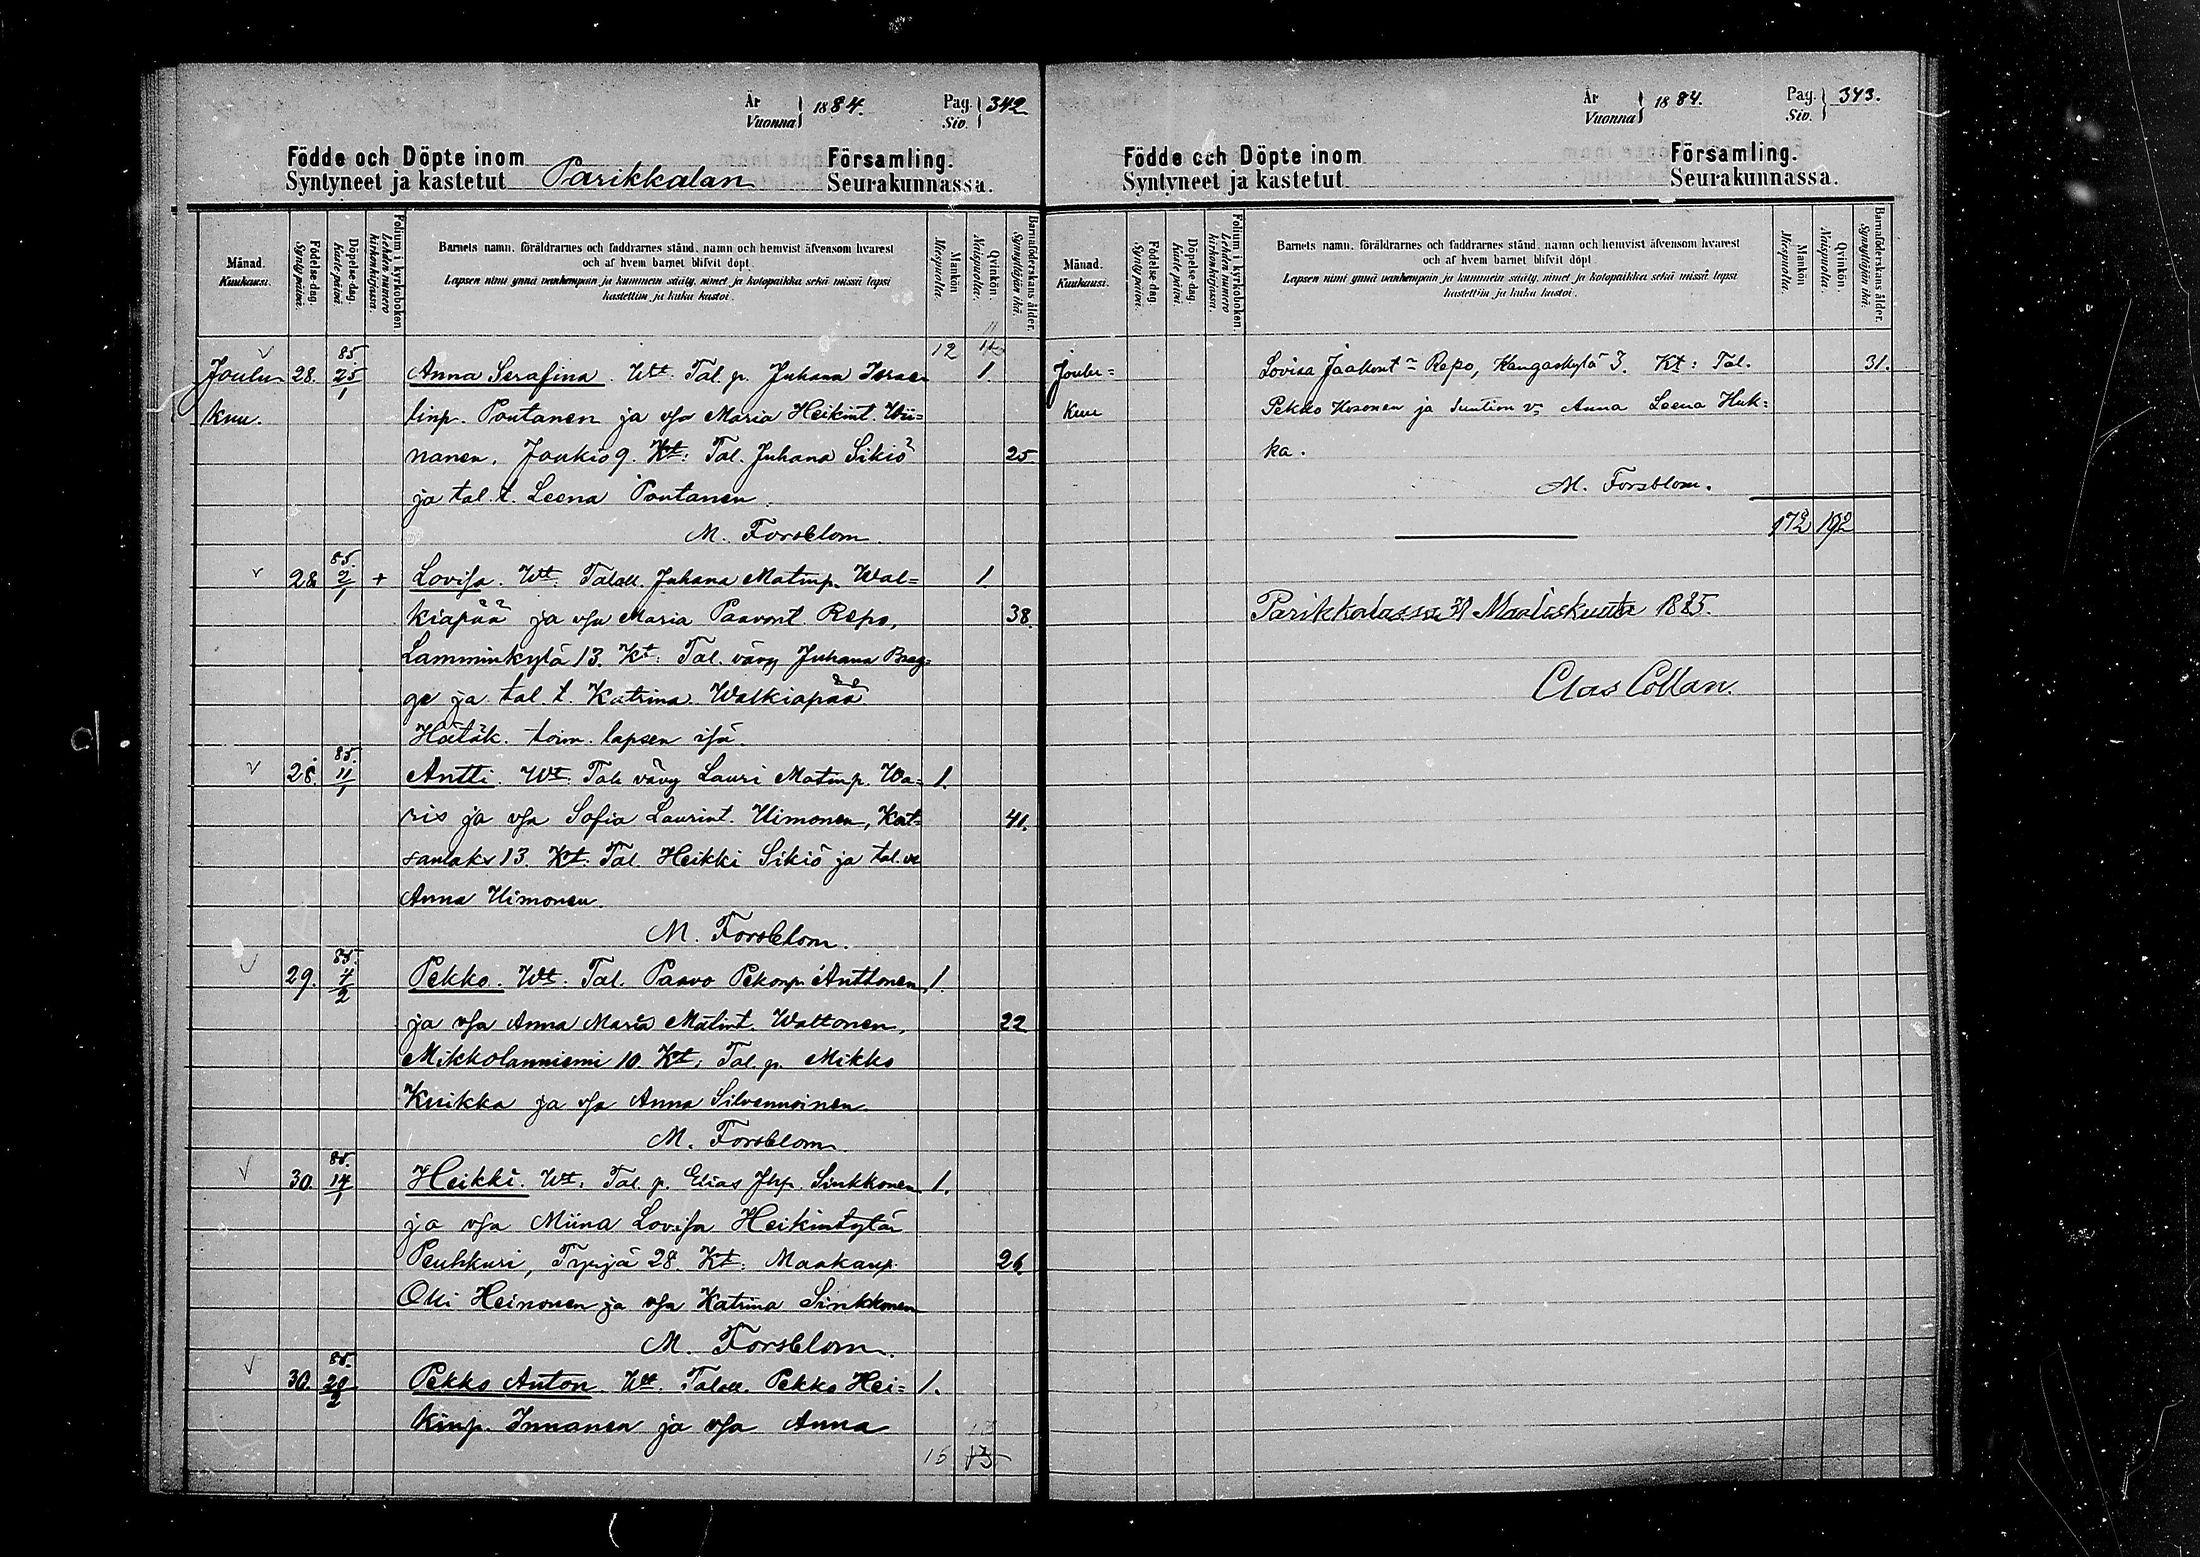 År
Vuonna } 1884.
Pag.
Siv. } 342
Födde och Döpte inom Församling.
Syntyneet ja kastetut Parikkalan Seurakunnassa.
Månad.
Kuukausi.
Födelse-dag.
Syntypäivä.
Döpelse-dag.
Kastepäivä.
Folium i kyrkoboken.
Lehden numero kirkonkirjassa.
Barnets namn, föräldrarnes och faddrarnes stånd, namn och hemvist äfvensom hvarest
och af hvem barnet blifvit döpt.
Lapsen nimi ynnä vanhempain ja kummein sääty, nimet ja kotopaikka sekä missä lapsi
kastettiin ja kuka kastoi.
Mankön.
Miespuolia.
Qvinkön.
Naispuolia.
Barnaföderskans ålder.
Synnyttäjän ikä.
12
Joulu- 28. 85 25/1 Anna Serafina. Wt. Tal. p. Juhana Israe- 1.
kuu. linp. Poutanen ja vsa Maria Heikint. Wii=
nanen. Joukio 9. Kt: Tal. Juhana Sikiö 25.
ja tal. t. Leena Poutanen.
M. Forsblom.
28 85. 2/1 + Lovisa. Wt. Talall. Juhana Matinp. Wal= 1
kiapää ja vsa Maria Paavont. Repo, 38.
Lamminkylä 13. Kt: Tal. vävy Juhana Brag-
ge ja tal. t. Katrina Walkiapää
Hätäk. toim. lapsen isä.
28. 85. 11/1 Antti. Wt. Tal. vävy Lauri Matinp. Wa- 1.
ris ja vsa Sofia Laurint. Uimonen, Kat- 41.
sanlaks 13. Kt: Tal. Heikki Sikiö ja tal. v.
Anna Uimonen.
M. Forsblom.
29. 85. 4/2 Pekko. Wt. Tal. Paavo Pekonp. Anttonen 1.
ja vsa Anna Maria Matint. Waltonen, 22
Mikkolanniemi 10. Kt: Tal. p. Mikko
Kuikka ja vsa Anna Silvennoinen.
M. Forsblom.
30. 85. 14/1 Heikki. Wt. Tal. p. Elias Jhp. Sinkkonen 1.
ja vsa Miina Lovisa Heikintytär
Peuhkuri, Tyrjä 28. Kt: Maakaup. 26.
Olli Heinonen ja vsa Katrina Sinkkonen
M. Forsblom.
30. 85. 20/2 Pekko Anton. Wt. Talall. Pekko Hei= 1.
kinp. Innanen ja vsa Anna
15 13
År
Vuonna } 1884.
Pag.
Siv. } 343.
Födde och Döpte inom Församling.
Syntyneet ja kastetut Seurakunnassa.
Månad.
Kuukausi.
Födelse-dag.
Syntypäivä.
Döpelse-dag.
Kastepäivä.
Folium i kyrkoboken.
Lehden numero kirkonkirjassa.
Barnets namn, föräldrarnes och faddrarnes stånd, namn och hemvist äfvensom hvarest
och af hvem barnet blifvit döpt.
Lapsen nimi ynnä vanhempain ja kummein sääty, nimet ja kotopaikka sekä missä lapsi
kastettiin ja kuka kastoi.
Mankön
Miespuolia.
Qvinkön.
Naispuolia.
Barnaföderskans ålder.
Synnyttäjän ikä.
Joulu= Lovisa Jaakont. Repo, Kangaskylä 3. Kt: Tal. 31.
kuu Pekko Kosonen ja suntion v. Anna Leena Huk=
ka.
M. Forsblom.
172 192
Parikkalassa 31 Maaliskuuta 1885.
Clas Collan.